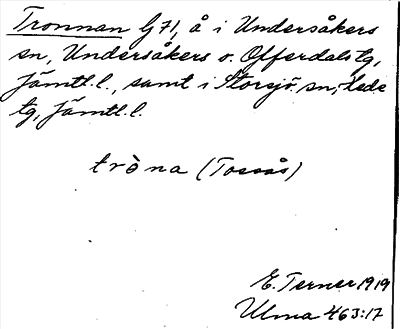 Tronnan G 71, å i Undersåkers
sn, Undersåkers o. Offerdals tg,
Jämtl. l., samt i Storsjö sn, Hede
tg, Jämtl. l.
tròna (Tossås)
E. Terner 1919
Ulma 463:17